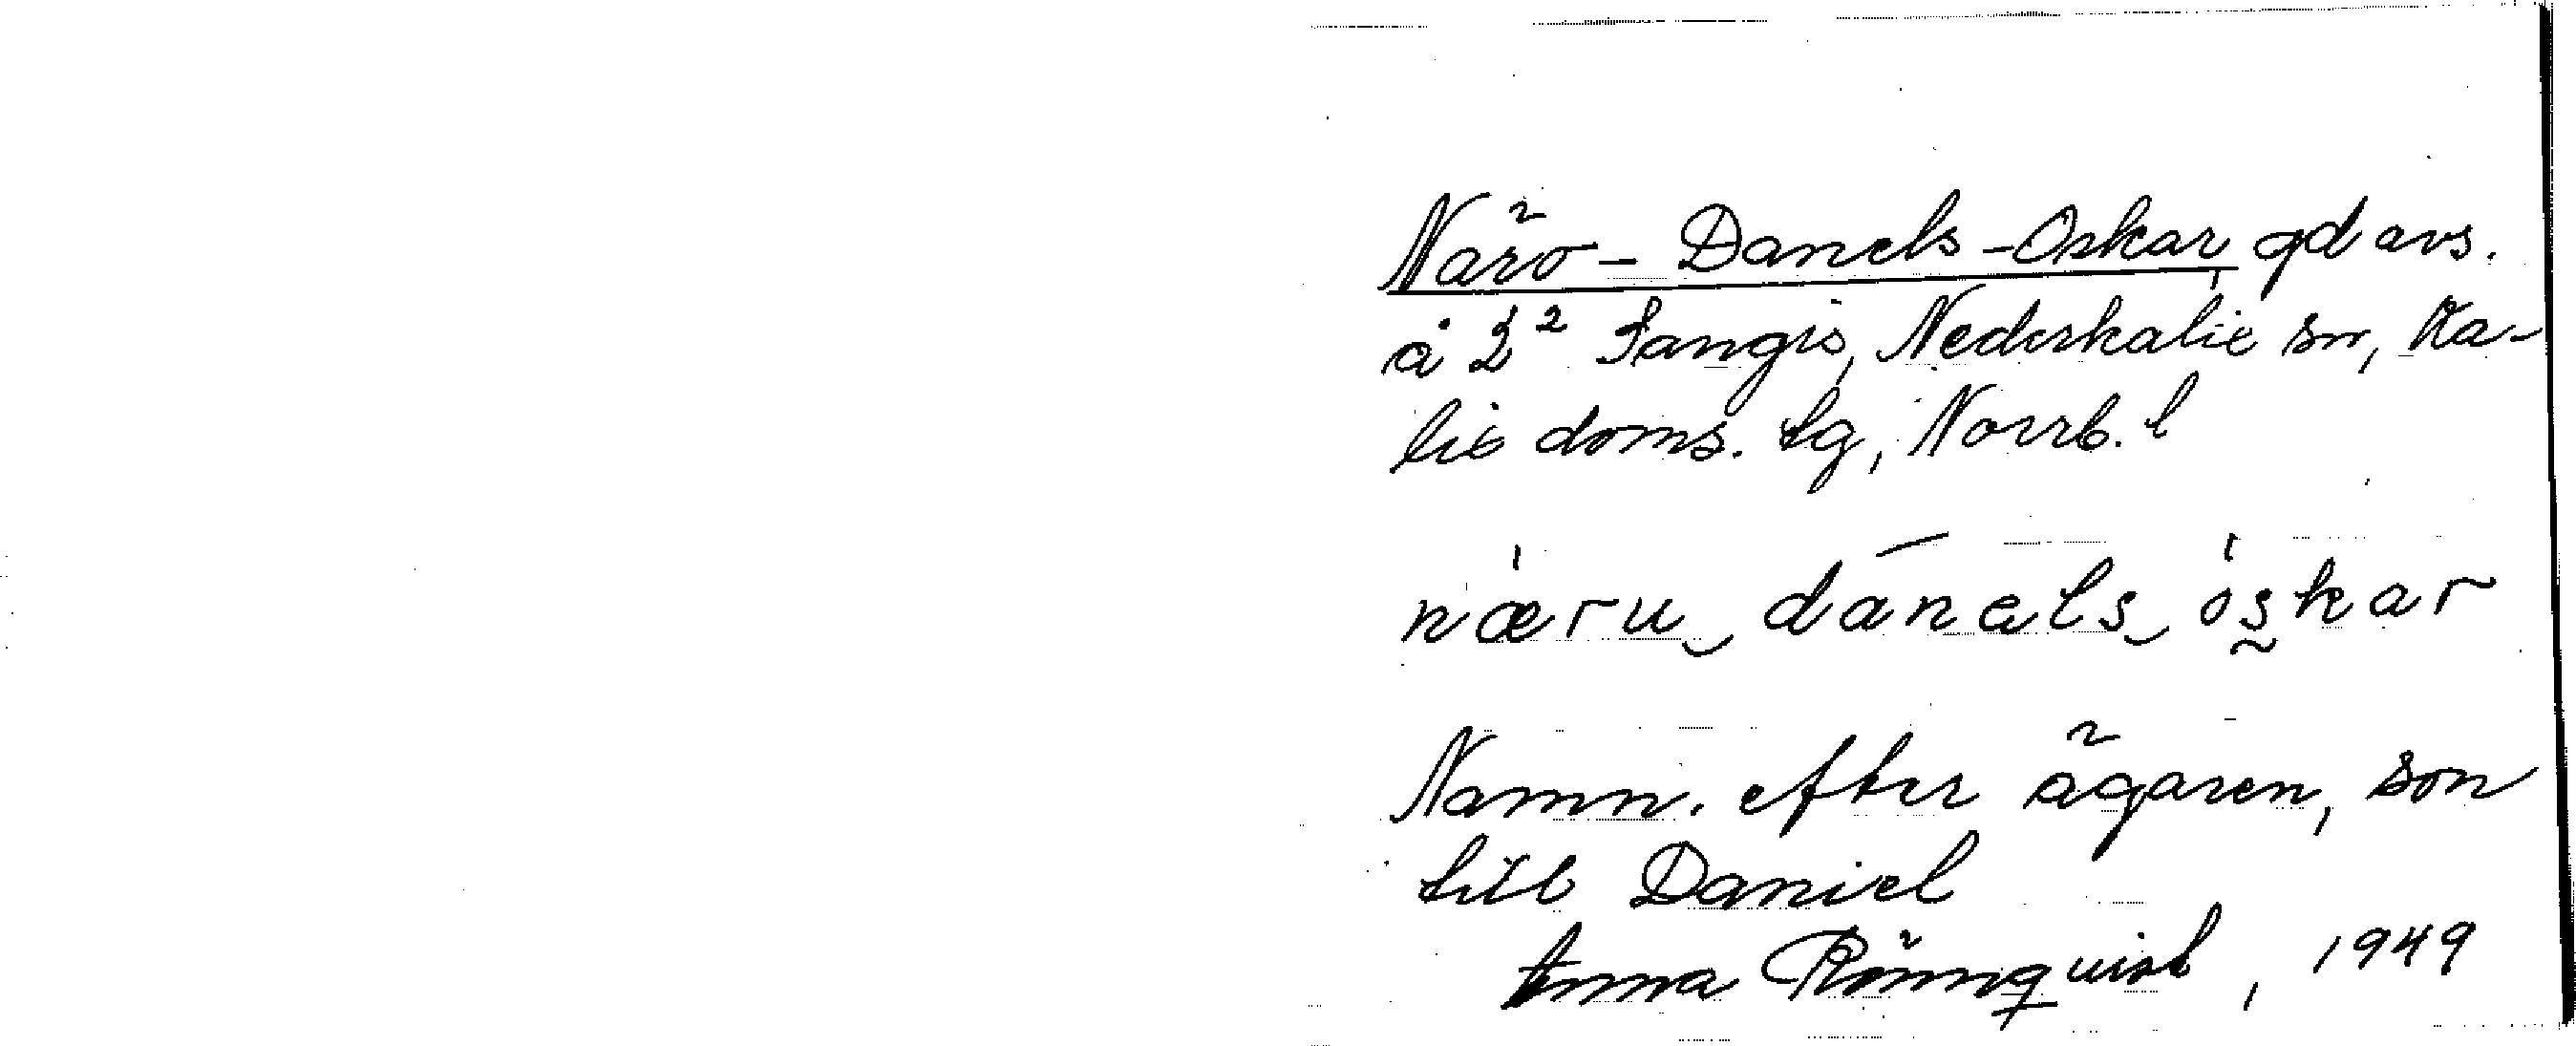 Närö-Danels-Oskar, gd avs.
å 2² Sangis, Nederkalix sn, Ka-
lix doms. lg, Norrb. l
næru danals oskar
Namn. efter ägaren, son
till Daniel
Anna Rönnquist, 1949